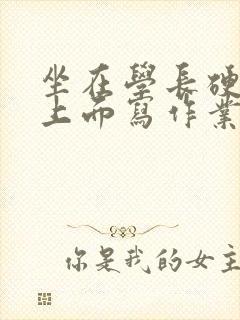 坐在學長硬
上而寫作業
你是我的女主